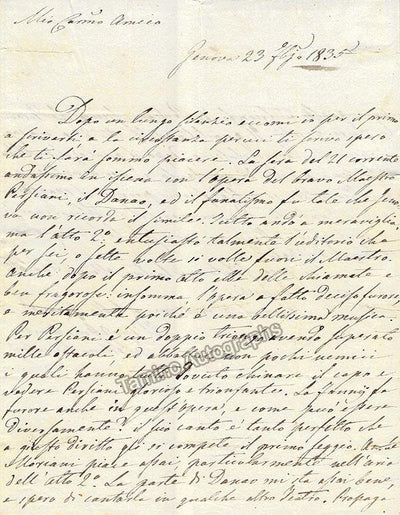 Mio Carmo Amico
Genova 23 1835
Dopo un lungo silenzio eccomi io per il primo
a scriverti; e la circostanza per cui ti scrivo spero
che ti sarà sommo piacere. La sera del 21 corrente
andassimo in iscena con l'opera del bravo Maestro
Persiani, il Danao, ed il fanatismo fu tale che Geno
va non ricorda il simile. Tutto andò a meraviglia,
ma l'atto 2º entusiastò talmente l'uditorio che
per sei, o sette volte si volle fuori il Maestro.
Anche dopo il primo atto ebbe delle chiamate e
ben fragorose: insomma, l'opera a fatto deciso furore,
e meritamente poichè è una bellissima musica.
Per Persiani è un doppio trionfo avendo superato
mille ostacoli, ed non pochi nemici
i quali hanno dovuto chinare il capo e
vedere Persiani glorioso e trionfante. La fa
furore anche in quest'opera, e come può essere
diversamente? il suo canto è tanto perfetto che
a giusto diritto gli si compete il primo seggio.
Moriani piace assai, particolarmente nell'aria
dell'atto 2º. La parte di Danao mi sta assai bene,
e spero di cantarla in qualche altro Teatro.
Tamino Autographs